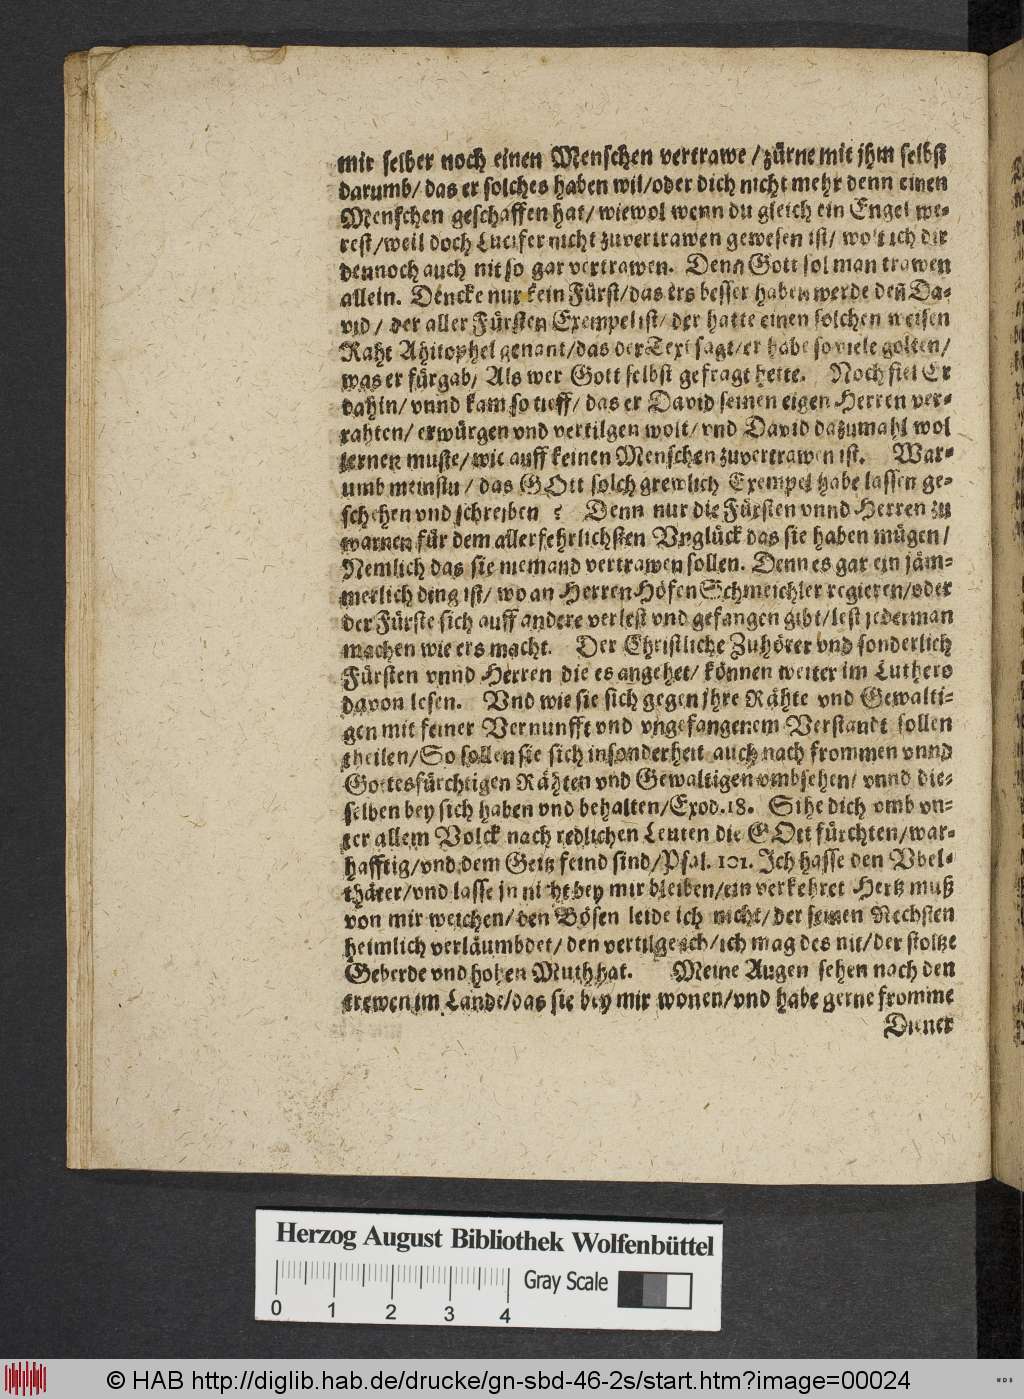 mir selber noch einen Menschen vertrawe / zürne mit jhm selbst
darumb / das er solches haben wil / oder dich nicht mehr denn einen
Menschen geschaffen hat / wiewol wenn du gleich ein Engel we-
rest / weil doch Lucifer nicht zuvertrawen gewesen ist / wolt ich dir
dennoch auch nit so gar vertrawen. Denn Gott sol man trawen
allein. Dencke nur kein Fürst / das ers besser haben werde deñ Da-
vid / der aller Fürsten Exempel ist / der hatte einen solchen weisen
Raht Ahitophel genant / das der Text sagt / er habe so viele golten /
was er fürgab / Als wer Gott selbst gefragt hette. Noch fiel Er
dahin / vnnd kam so tieff / das er David seinen eigen Herren ver-
rahten / erwürgen vnd vertilgen wolt / vnd David dazumahl wol
lernen muste / wie auff keinen Menschen zuvertrawen ist. War-
umb meinstu / das GOtt solch grewlich Exempel habe lassen ge-
schehen vnd schreiben ? Denn nur die Fürsten vnnd Herren zu
warnen für dem allerfehrlichsten Vnglück das sie haben mügen /
Nemlich das sie niemand vertrawen sollen. Denn es gar ein jäm-
merlich ding ist / wo an Herren Höfen Schmeichler regieren / oder
der Fürste sich auff andere verlest vnd gefangen gibt / lest jederman
machen wie ers macht. Der Christliche Zuhörer vnd sonderlich
Fürsten vnnd Herren die es angehet / können weiter im Luthero
davon lesen. Vnd wie sie sich gegen jhre Rähte vnd Gewalti-
gen mit feiner Vernunfft vnd vngefangenem Verstandt sollen
theilen / So sollen sie sich insonderheit auch nach frommen vnnd
Gottesfürchtigen Rähten vnd Gewaltigen vmbsehen / vnnd die-
selben bey sich haben vnd behalten / Exod. 18. Sihe dich vmb vn-
ter allem Volck nach redlichen Leuten die GOtt fürchten / war-
hafftig / vnd dem Geitz feind sind / Psal. 101. Ich hasse den Vbel-
thäter / vnd lasse jn nicht bey mir bleiben / ein verkehret Hertz muß
von mir weichen / den Bösen leide ich nicht / der seinen Nechsten
heimlich verläumbdet / den vertilge ich / ich mag des nit / der stoltze
Geberde vnd hohen Muth hat. Meine Augen sehen nach den
trewen im Lande / das sie bey mir wonen / vnd habe gerne fromme
Diener
Herzog August Bibliothek Wolfenbüttel
0 1 2 3 4 Gray Scale
© HAB http://diglib.hab.de/drucke/gn-sbd-46-2s/start.htm?image=00024